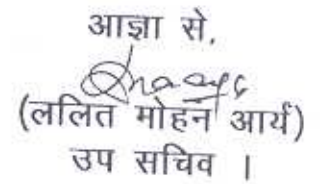 आज्ञा से,
(ललित मोहन आर्य)
उप सचिव ।